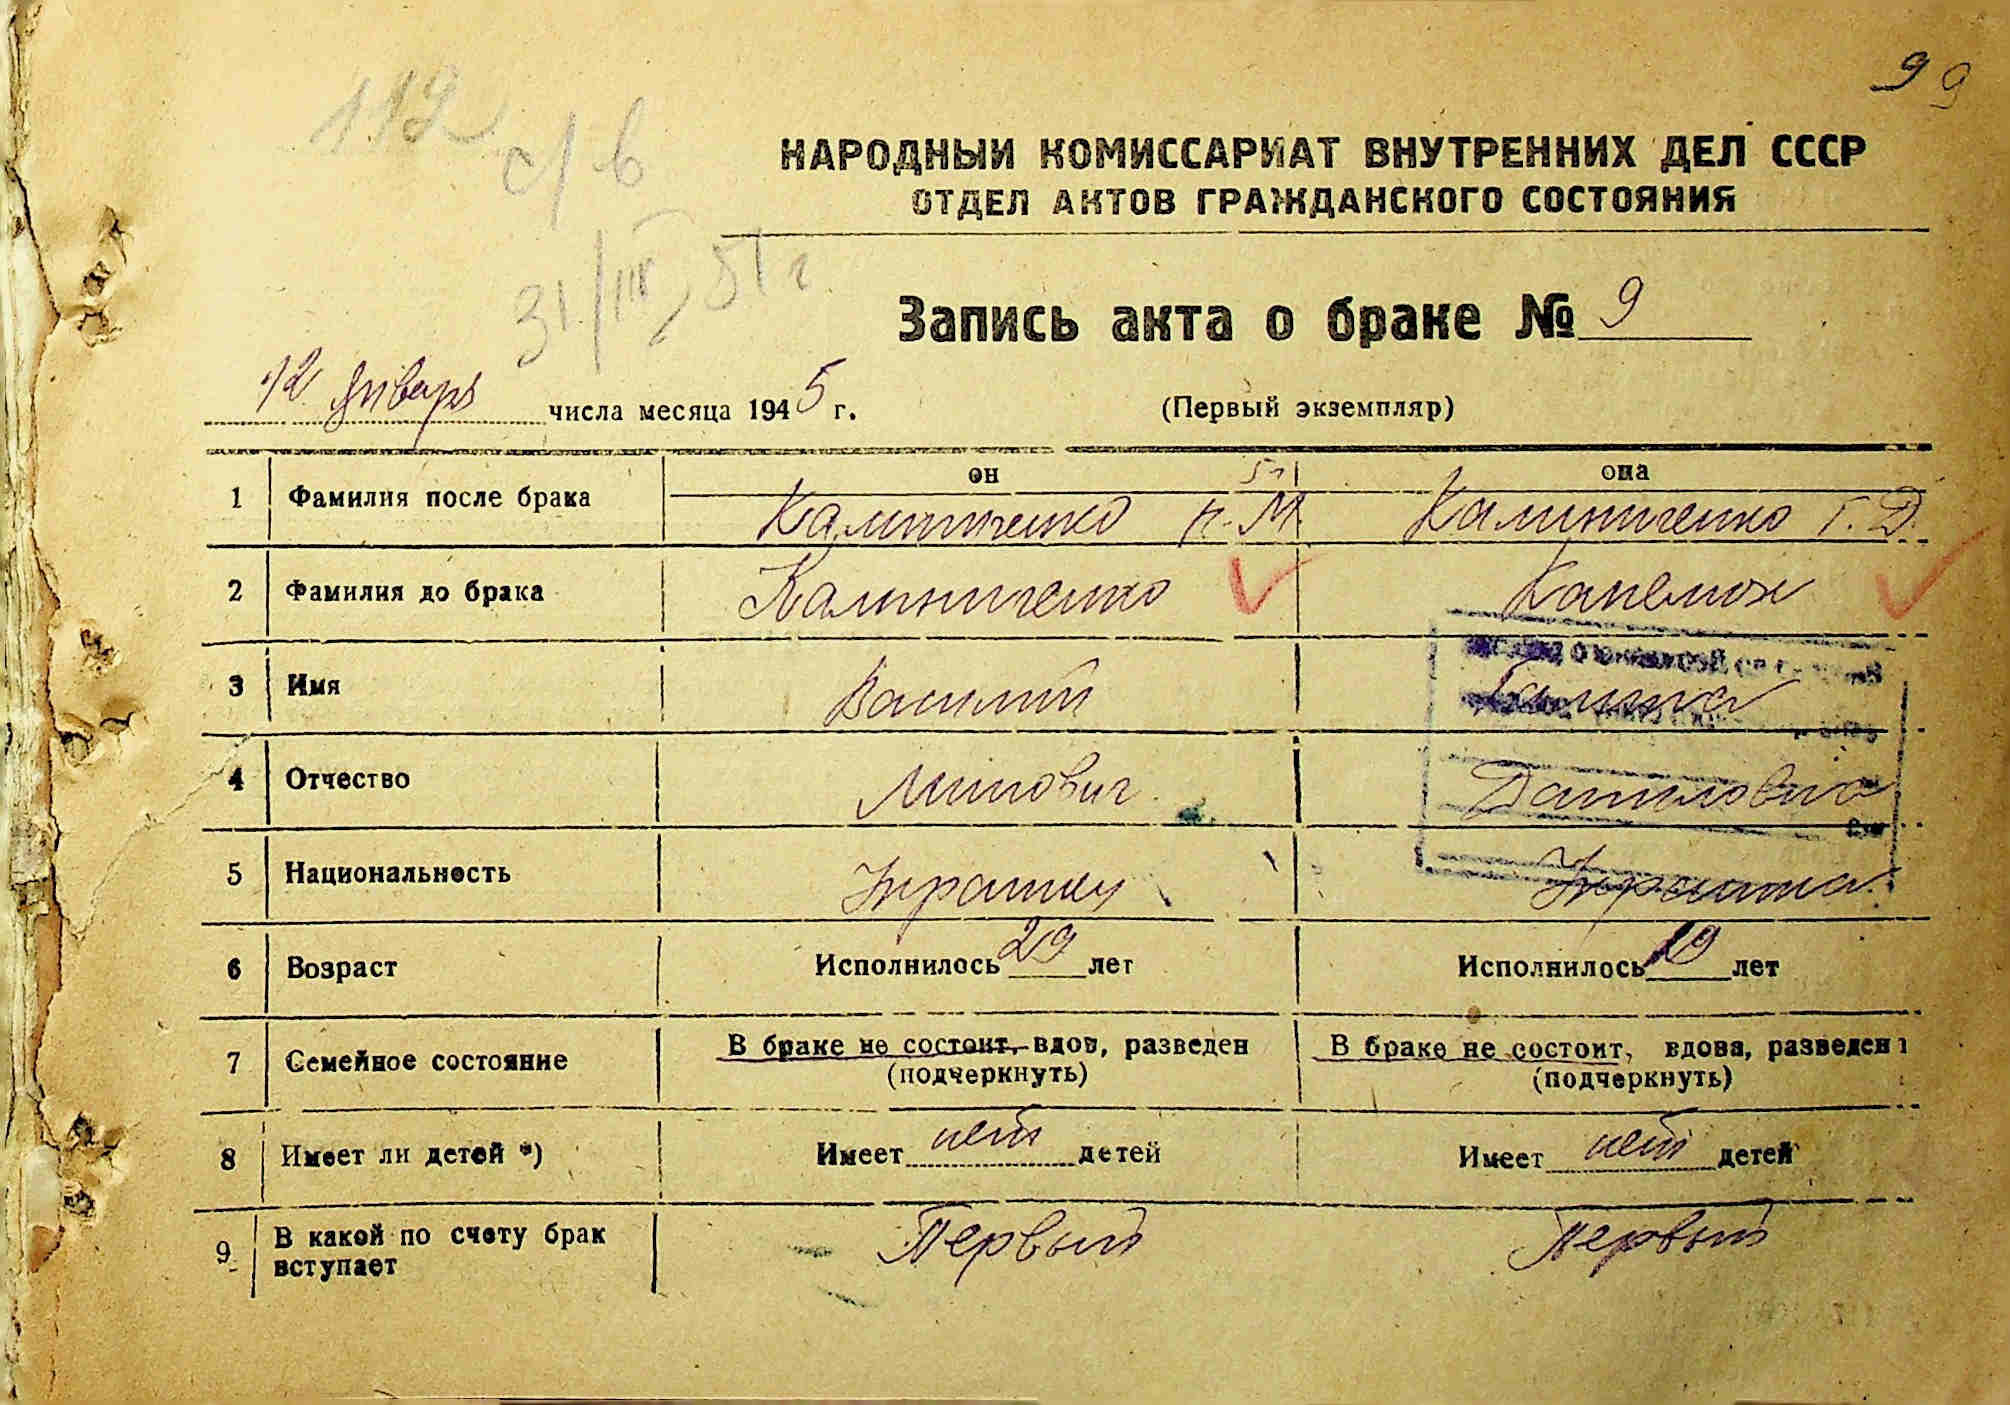 99
112
с/в
31/III 51 г
НАРОДНЫЙ КОМИССАРИАТ ВНУТРЕННИХ ДЕЛ СССР
ОТДЕЛ АКТОВ ГРАЖДАНСКОГО СОСТОЯНИЯ
Запись акта о браке № 9
12 январь числа месяца 1945 г. (Первый экземпляр)
он она
1 Фамилия после брака Калиниченко М. Калиниченко Г. Д.
2 Фамилия до брака Калиниченко
3 Имя Василий Галина
4 Отчество Даниловна
5 Национальность Украинец Украинка
6 Возраст Исполнилось 29 лет Исполнилось 19 лет
7 Семейное состояние В браке не состоит, вдов, разведен В браке не состоит, вдова, разведен
(подчеркнуть) (подчеркнуть)
8 Имеет ли детей *) Имеет нет детей Имеет нет детей
9 В какой по счету брак вступает Первый Первый